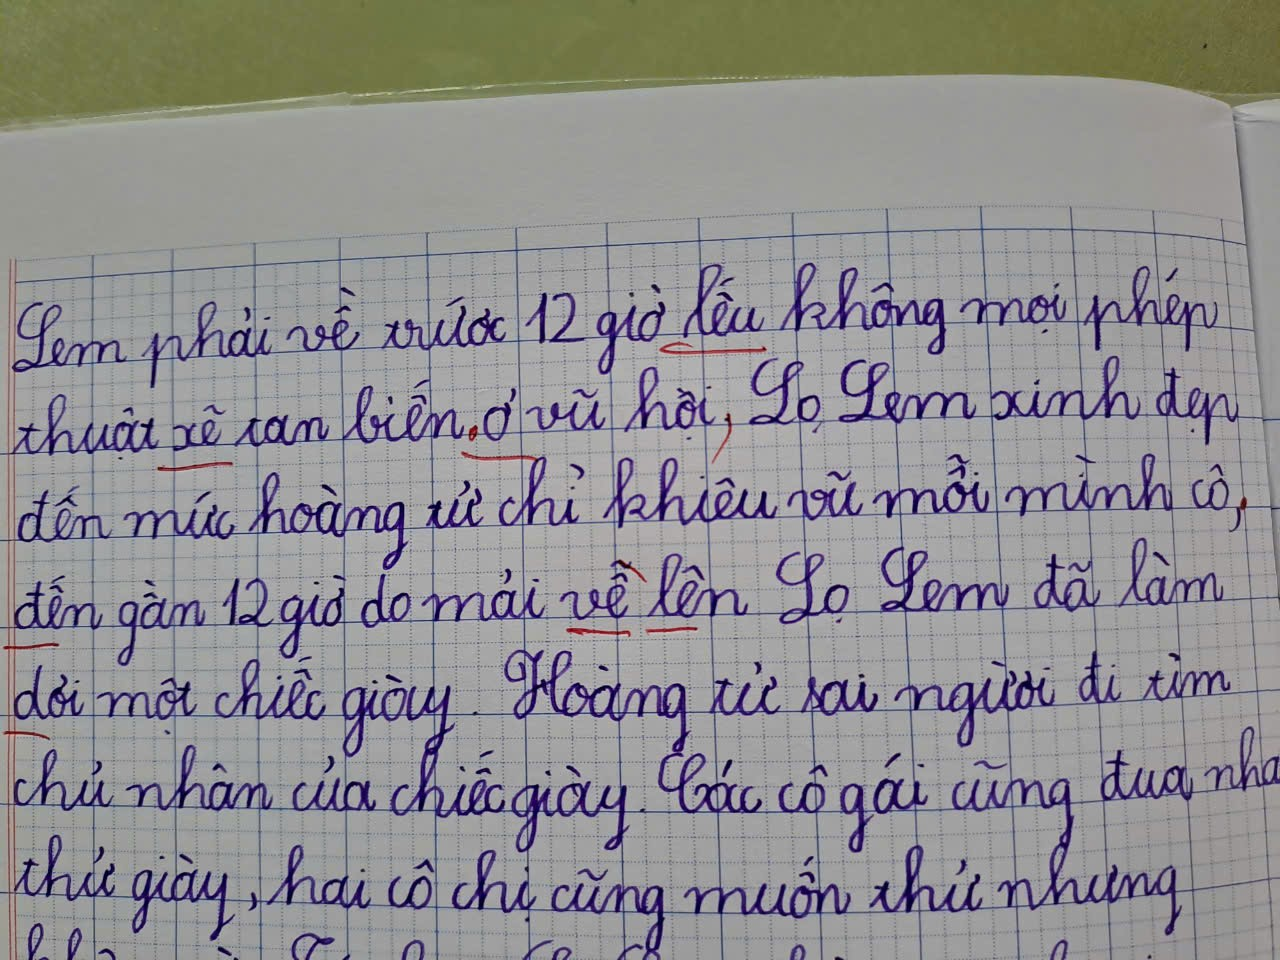 Lem phải về trước 12 giờ lếu không mọi phép
thuật xẽ tan biến. ở vũ hội, Lọ Lem xinh đẹp
đến mức hoàng tử chỉ khiêu vũ mỗi mình cô,
đến gần 12 giờ do mải về lên Lọ Lem đã làm
dơi một chiếc giày. Hoàng tử sai người đi tìm
chủ nhân của chiếc giày. Các cô gái cũng đua nha
thử giày, hai cô chị cũng muốn thử nhưng